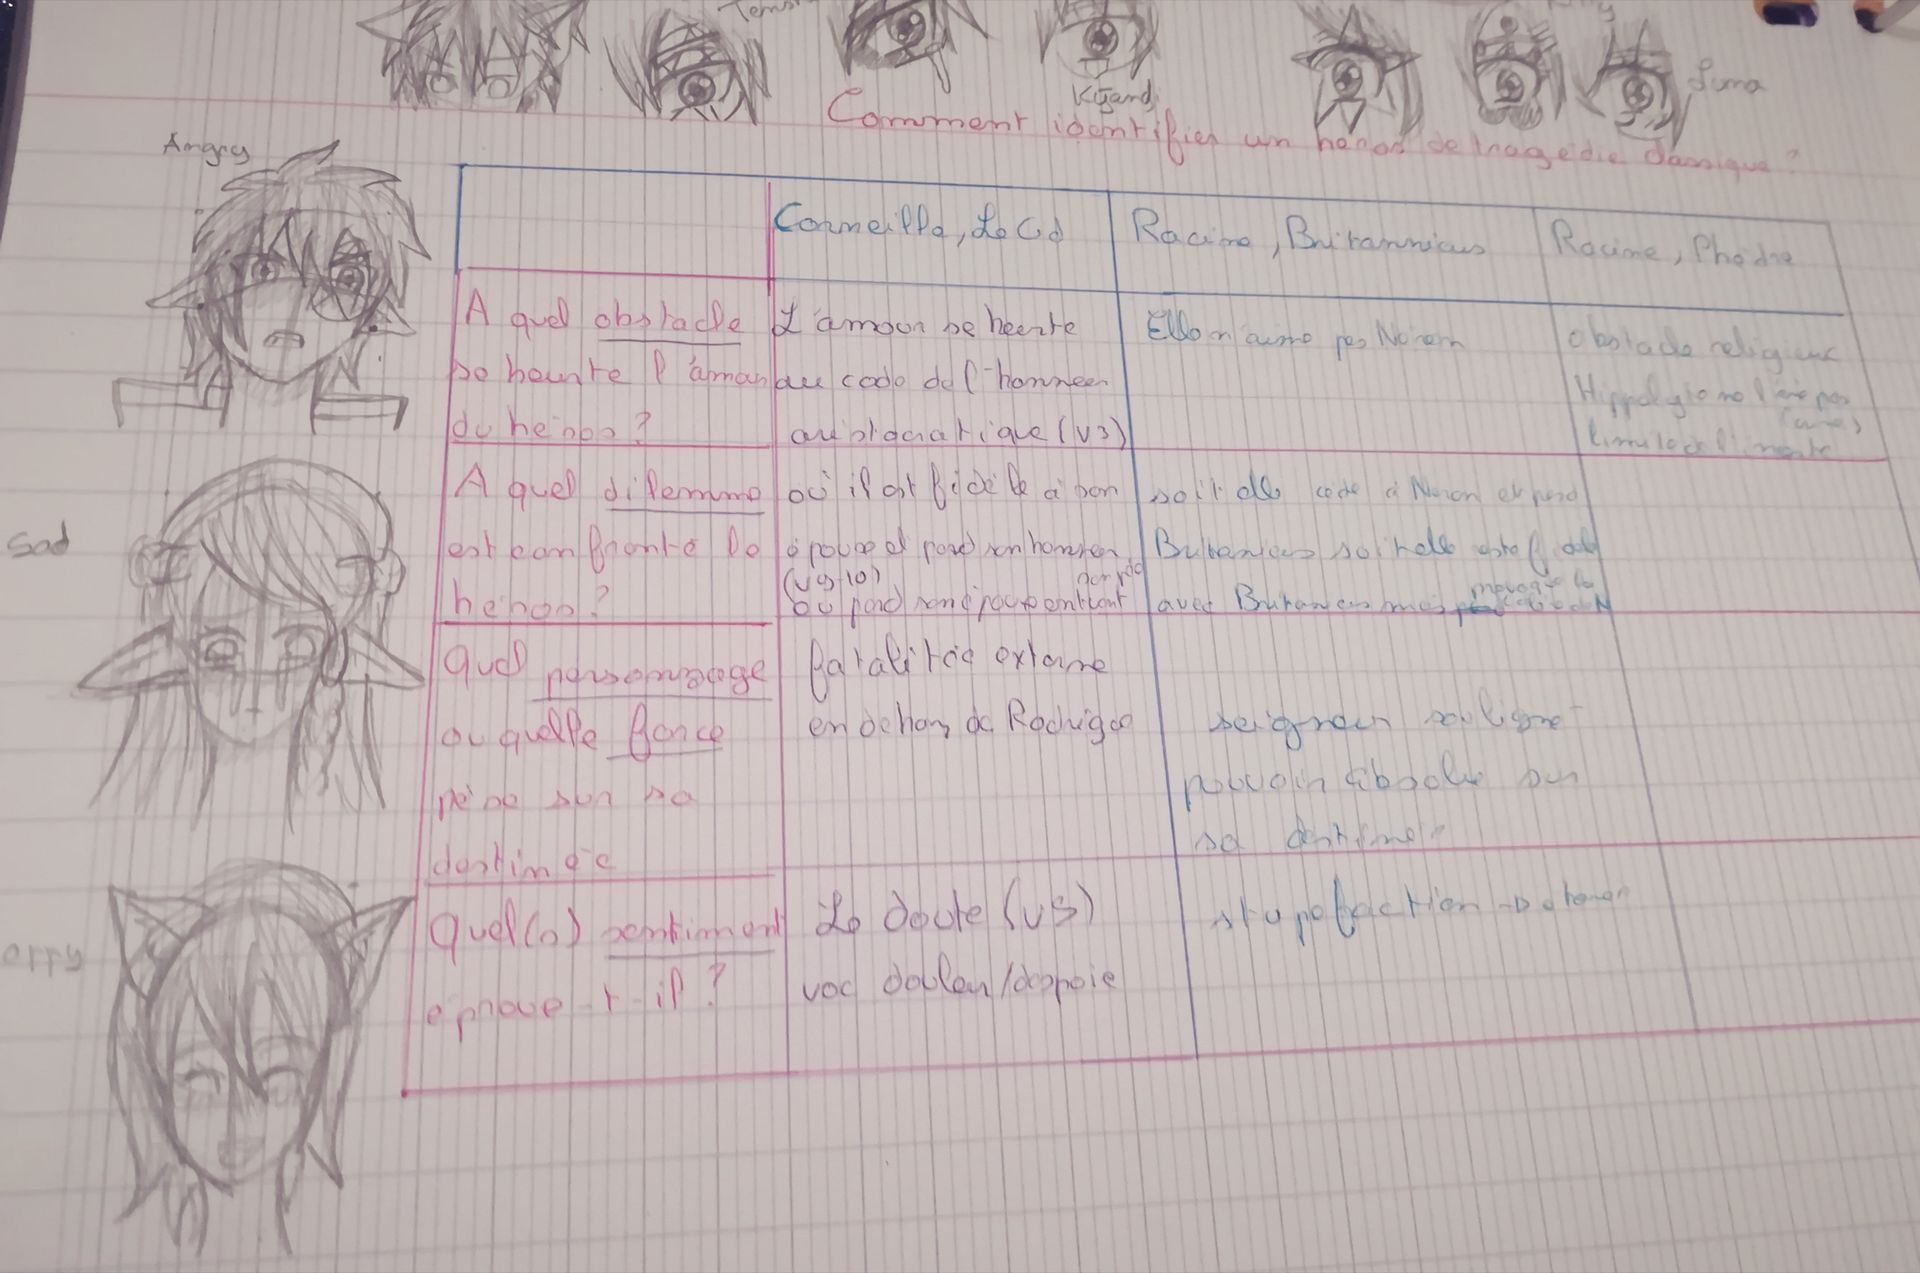 Kyand
Suma
Comment identifier un heros de tragédie classique ?
Angry
Sad
Corneille, Le Cid
Racine, Britannicus
Racine, Phedre
A quel obstacle
se heurte l'aman
du heros ?
L'amour se heurte
au code de l'honneur
aristocratique (v3)
Elle n'aime pas Neron
obstacle religieux
A quel dilemme
est confronté le
heros ?
où il est fidele à son
epouse et perd son honneur
(v9-10)
ou perd son epouse en
soit elle cede à Neron et perd
Britanicus soit elle
avec Britanicus mais
Quel personnage
ou quelle force
pèse sur sa
destinée
fatalitée externe
en dehors de Rodrigue
seigneur souligne
pouvoir absolu sur
sa destinée
Quel(s) sentiment
eprouve-t-il ?
Le doute (v5)
voc douleur/despoie
stupefaction